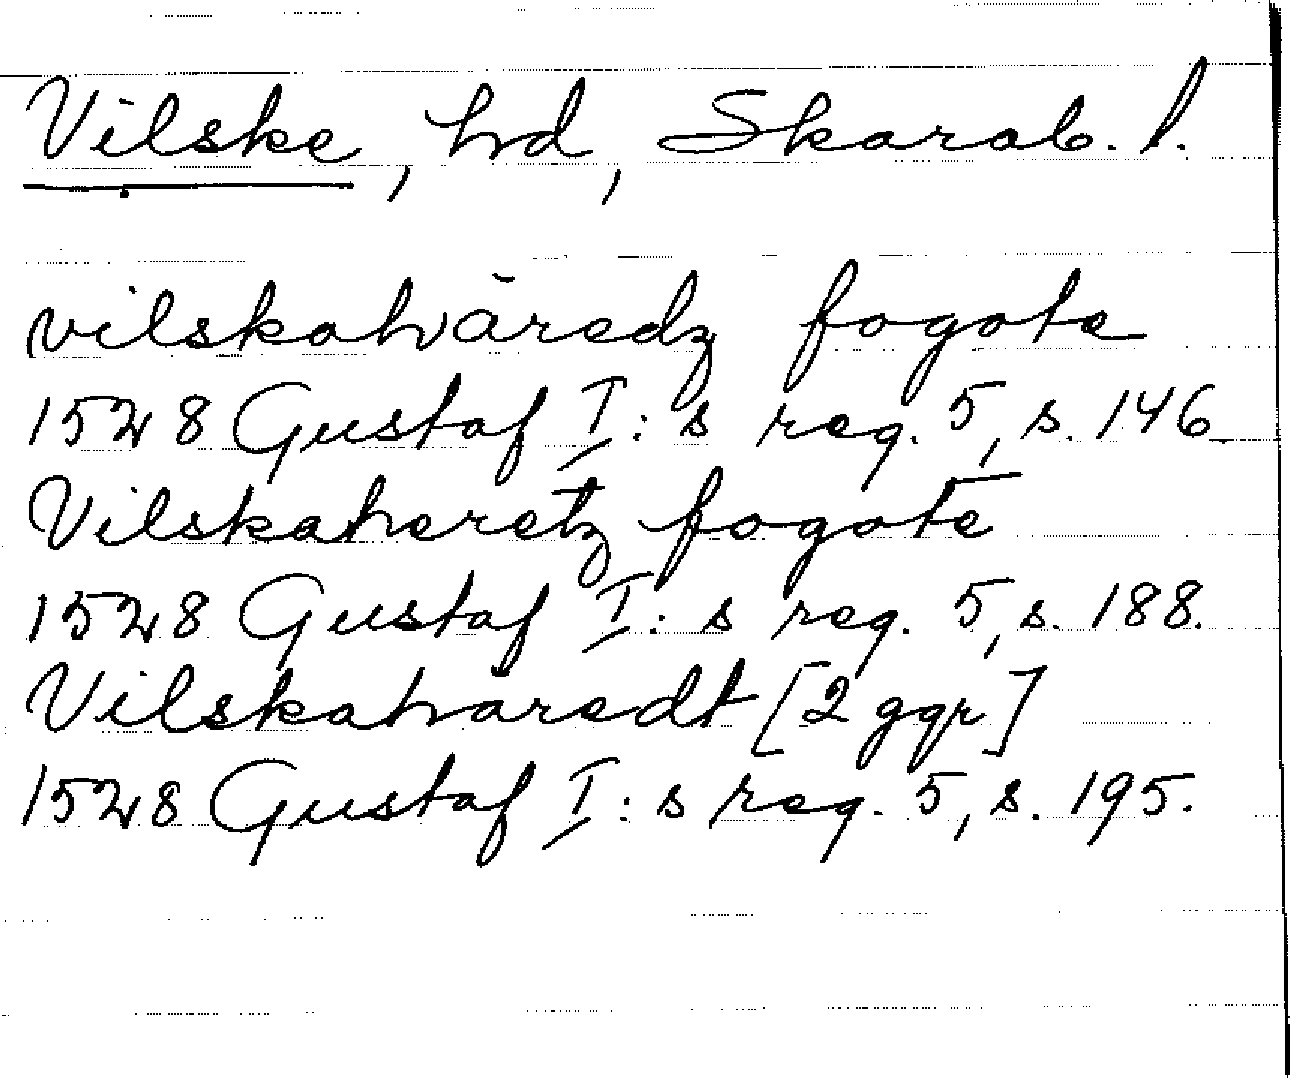 Vilske, hd, Skarab. l.
vilskahäredz fogote
1528 Gustaf I:s reg. 5, s. 146.
Vilskaheretz fogote
1528 Gustaf I:s reg. 5, s. 188.
Vilskaharedt [2 ggr]
1528 Gustaf I:s reg. 5, s. 195.